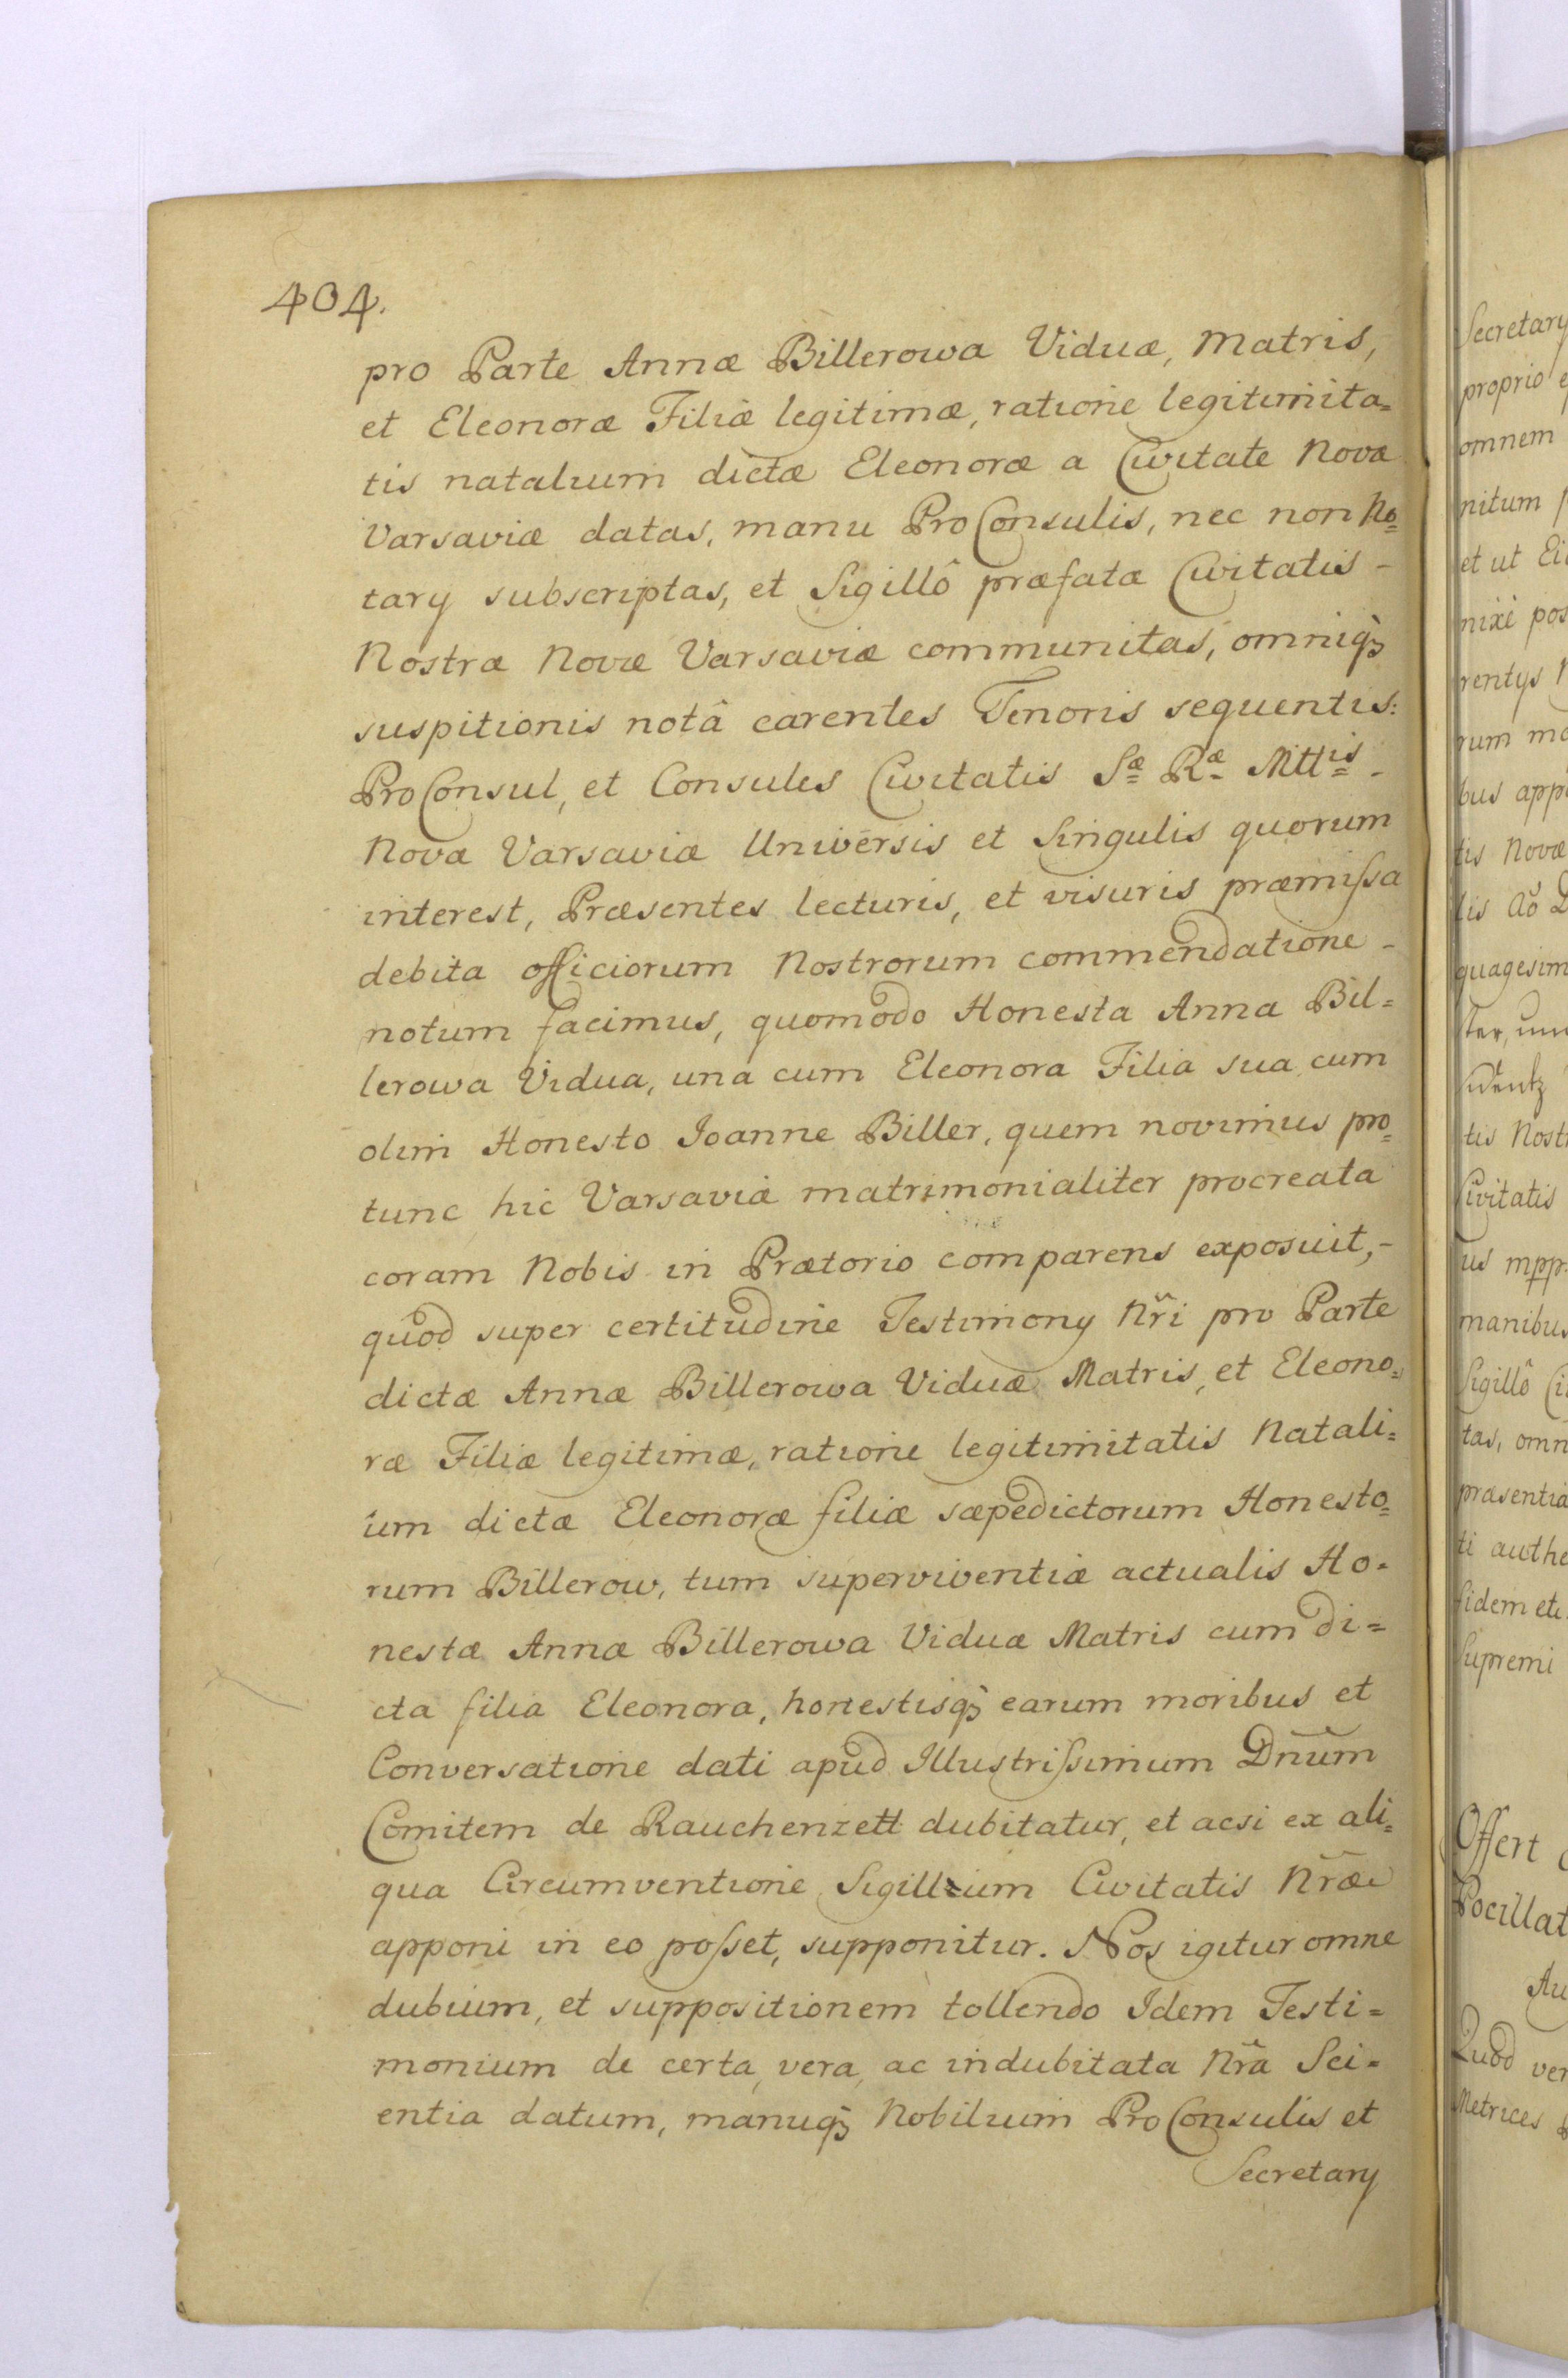 404.
pro Parte Annæ Billerowa Viduæ, Matris,
et Eleonoræ Filiæ legitimæ, ratione legitimita=
tis natalium dictæ Eleonoræ a Civitate Novæ
Varsaviæ datas, manu ProConsulis, nec non No=
tarij subscriptas, et Sigillô præfatæ Civitatis -
Nostræ Novæ Varsaviæ communitas, omniq́
suspitionis notâ carentes Tenoris sequentis:
ProConsul, et Consules Civitatis Sæ Ræ Mttis -
Novæ Varsaviæ Universis et Singulis quorum
interest, Præsentes lecturis, et visuris præmissa
debita officiorum Nostrorum commendatione -
notum facimus, quomodo Honesta Anna Bil=
lerowa Vidua, una cum Eleonora Filia sua cum
olim Honesto Joanne Biller, quem novimus pro=
tunc hic Varsaviæ matrimonialiter procreata
coram Nobis in Prætorio comparens exposuit, -
quod super certitudine Testimonij Nr̃i pro Parte
dictæ Annæ Billerowa Viduæ Matris, et Eleono=
ræ Filiæ legitimæ, ratione legitimitatis Natali=
um dictæ Eleonoræ filiæ sæpedictorum Honesto=
rum Billerow, tum superviventiæ actualis Ho=
nestæ Annæ Billerowa Viduæ Matris cum di=
cta filia Eleonora, honestisq́ earum moribus et
Conversatione dati apud Illustrissimum Dnũm
Comitem de Rauchenzett dubitatur, et acsi ex ali=
qua Circumventione Sigillum Civitatis Nr̃æ
apponi in eo posset, supponitur. Nos igitur omne
dubium, et suppositionem tollendo Idem Testi=
monium de certa, vera, ac indubitata Nr̃a Sci=
entia datum, manuq́ Nobilium ProConsulis et
Secretarij
Secretarij
proprio
omnem
nitum
et ut
nixè
rentys
rum
bus
tis Novæ
lis Aõ
quagesim
ter,
tis Nost
Civitatis
us mpp.
manibus
Sigillô
tas, omn
præsentia
ti authe
fidem
Supremi
Offert
Pocillat
Au
Quod ver
Metrices